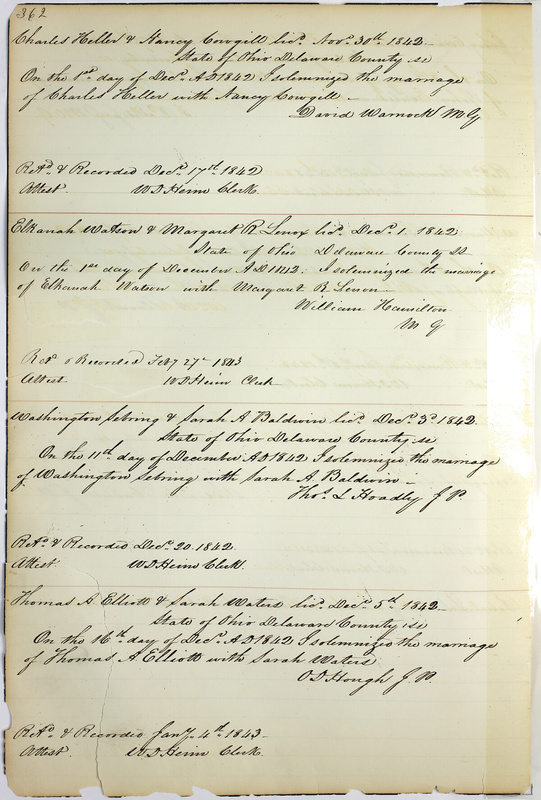 362
Charles Heller & Nancy Cowgill lic. Nov. 30th 1842
State of Ohio Delaware County ss
On the 1st day of Dec. AD 1842 I solemnize the marriage
of Charles Heller with Nancy Cowgill
David Warnock M G
Retd. & Recorded Decr. 17th 1842
Attest. W D Heim Clerk.
Elkanah Watson & Margaret R. Lenox lic. Decr. 1. 1842
State of Ohio Delaware County SS
On the 1st day of December AD 1842. I solemnized the marriage
of Elkanah Watson with Margaret R Lenox
William Hamilton
M G
Retd & Recorded Feby 27th 1843
Attest W D Heim Clerk
Washington Sebring & Sarah A Baldwin lic. Decr. 3d. 1842.
State of Ohio Delaware County ss
On the 11th day of December AD 1842 I solemnized the marriage
of Washington Sebring with Sarah A. Baldwin
Thos. L Hoadly J P.
Retd. & Recorded Decr. 20. 1842.
Attest W D Heim Clerk.
Thomas A. Elliott & Sarah Waters lic. Decr. 5th 1842
State of Ohio Delaware County ss
On the 16th day of Decr. AD 1842 I solemnized the marriage
of Thomas A Elliott with Sarah Waters
O D Hough J. P.
Retd. & Recorded Jany. 4th 1843
Attest. W D Heim Clerk.